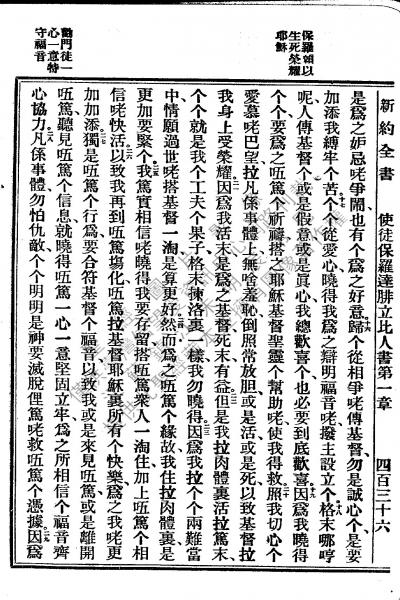 保羅頋以
生死榮耀
耶穌
勸門徒一
心一意特
守福音
新約全書 使徒保羅達腓立比人書第一章 四百三十六
是爲之妒忌咾爭鬧、也有个爲之好意、十六歸个從相爭咾傳基督、勿是誠心个、是要
加添我縛牢个苦、十七个个從愛心、曉得我爲之辯明福音咾撥主設立个、十八格末哪哼
呢、人傳基督个、或是假意、或是眞心、我總歡喜个、也必要到底歡喜、十九因爲我曉得
个个要爲之㕶篤个祈禱、搭之耶穌基督聖靈个幫助咾、使我得救、二十照我切心个
愛慕咾巴望、拉凡係事體上、無啥羞恥、倒照常放胆、或是活、或是死、以致基督拉
我身上受榮耀、二一因爲我活末是爲之基督、死末有益、二二但是我拉肉體裏活拉業末、
个个就是我个工夫个果子、格末揀洛裏一樣、我勿曉得、二三因爲我拉个个兩難當
中、情願過世咾搭基督一淘、是算更好、二四然而爲之㕶篤个緣故、我住拉肉體裏、是
更加要緊个、二五我篤實相信咾曉得我要存留、搭㕶篤衆人一淘住、加上㕶篤个相
信咾快活、二六以致我再到㕶篤塲化、㕶篤拉基督耶穌裏所有个快樂、爲之我咾更
加加添、二七獨是㕶篤个行爲、要合符基督个福音、以致我或是來見㕶篤、或是離開
㕶篤、聽見㕶篤个信息、就曉得㕶篤一心一意、堅固立牢、爲之所相信个福音、齊
心協力、二八凡係事體、勿怕仇敵个、个明明是神要滅脫俚篤咾救㕶篤个憑據、二九因爲